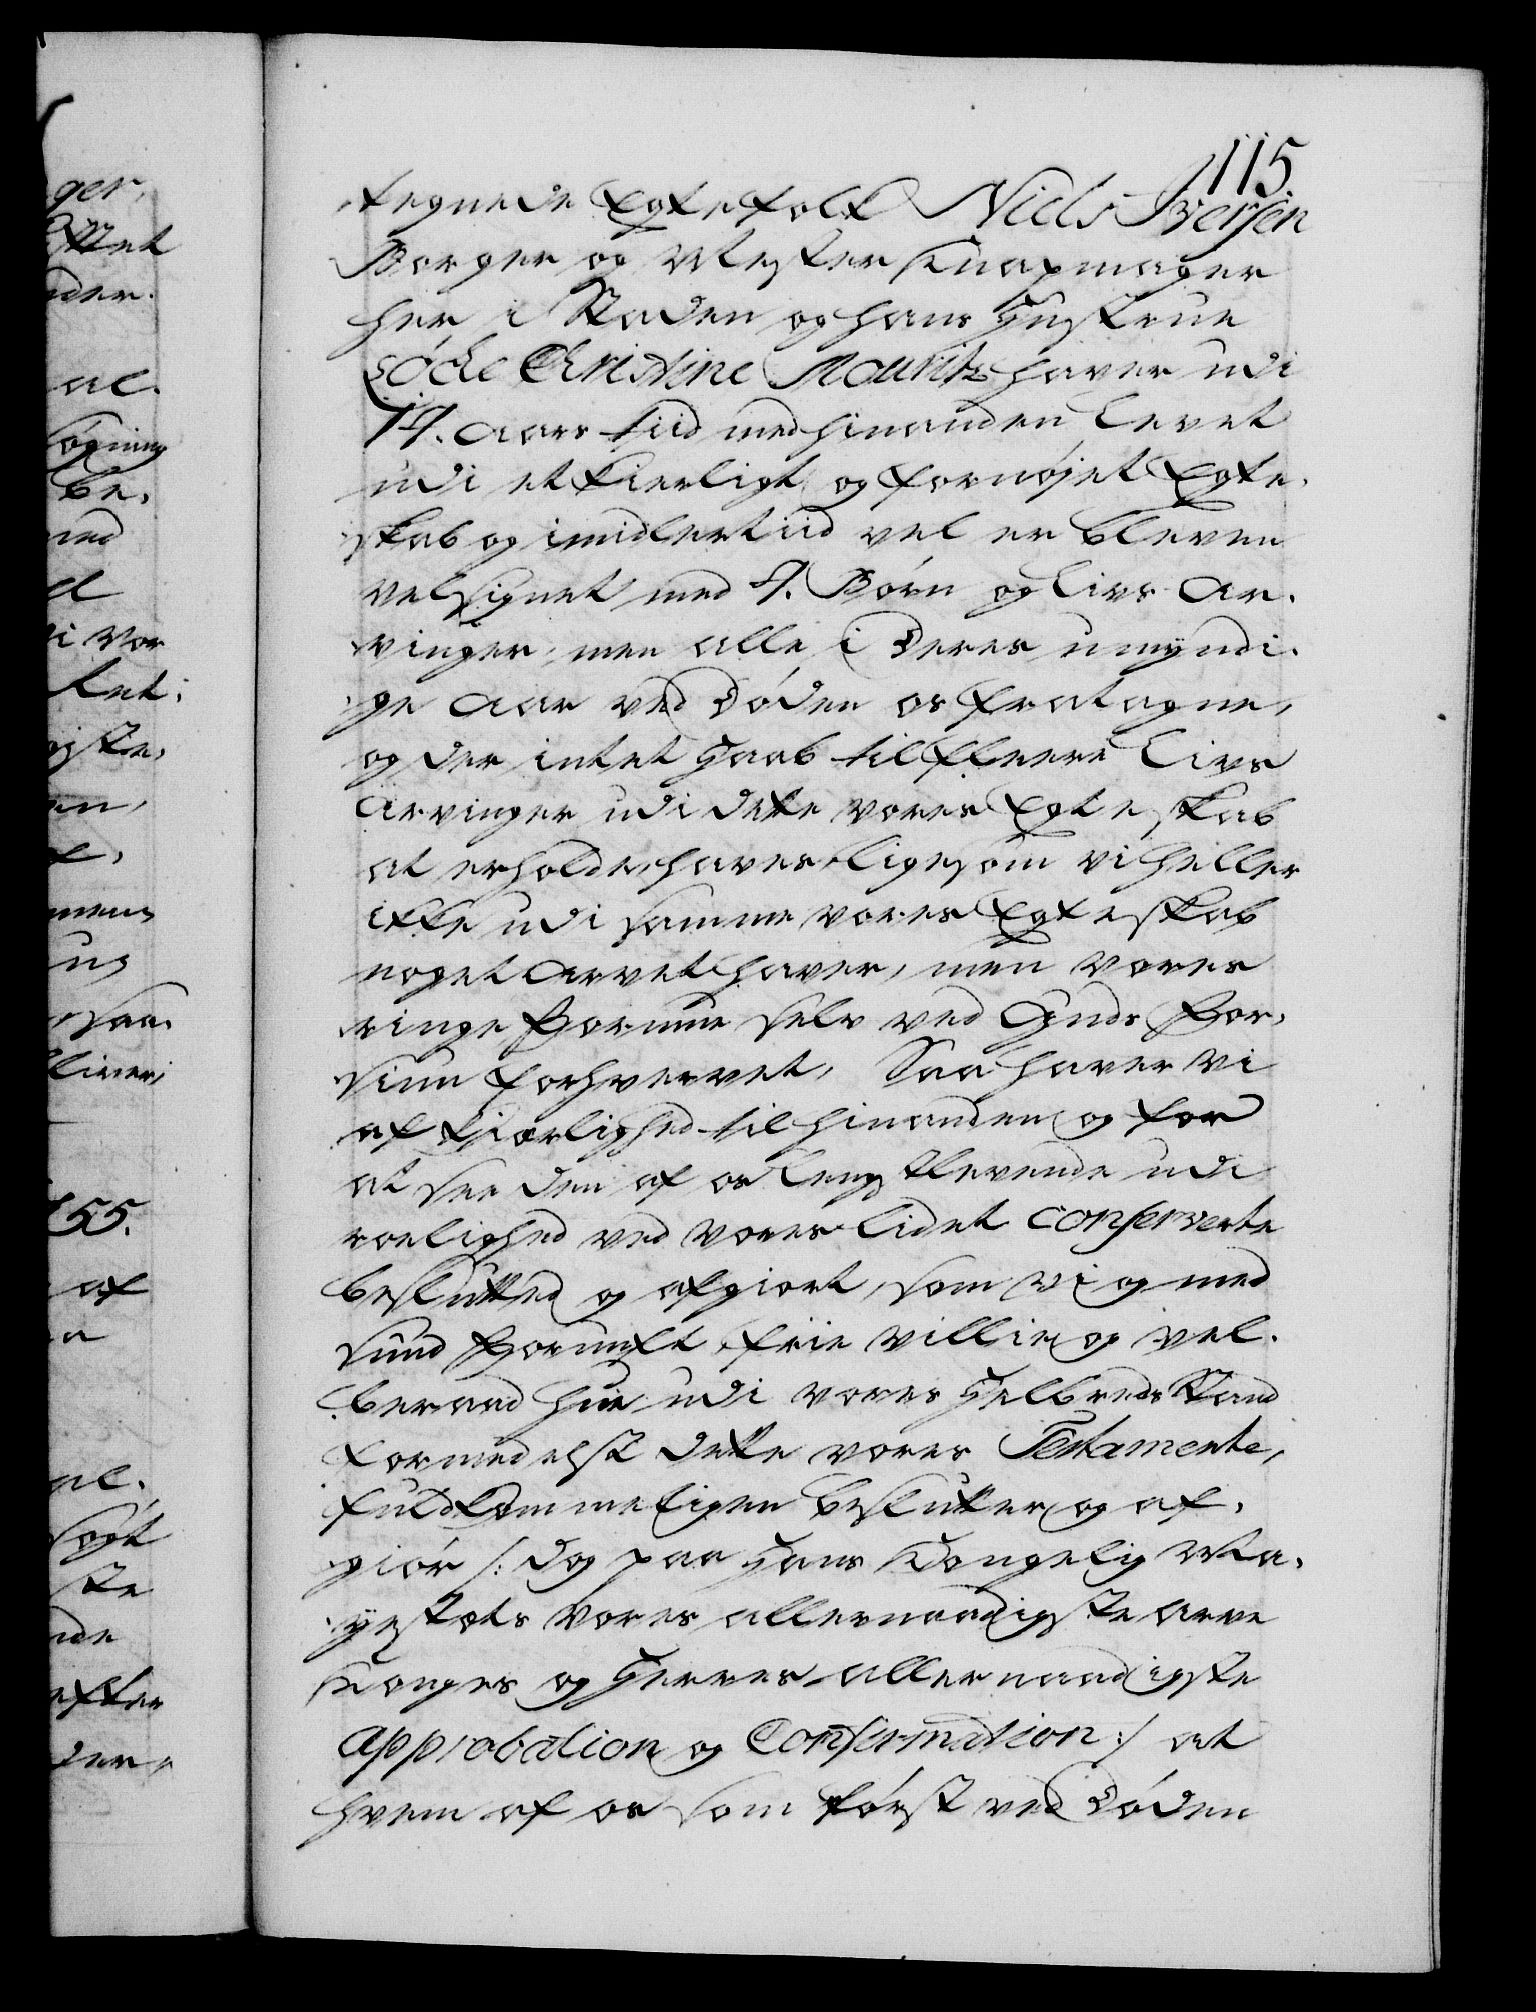 115.
tegnede Egtefolk Niels Iversen
Borger og Mester Knapmager
her i Staden og hans Hustrue
Söcke Christine Mouritz haver udi
14. Aars tiid med hinanden levet
udi et kierligt og fornøjet Egte-
skab og imidlertiid vel er bleven
velsignet med 4. Børn og Livs Ar-
vinger, men alle i Deres umyndi-
ge Aar ved Døden os fratagne,
og der intet Haab til fleere Livs
Arvinger udi dette vores Egteskab
at erholde, haves, ligesom vi heller
ikke udi samme vores Egteskab
noget arvet haver, men vores
ringe Formue selv ved Guds For-
siun forhvervet, Saa haver vi
af Kierlighed til hinanden og for
at see den af os lengstlevende udi
roelighed ved vores lidet conserverte
beslutted og afgiort, som vi og med
sund Fornuft, friie Villie og vel-
beraad Hue udi vores Helbreds Stand
formedelst dette vores Testamente,
fuldkommeligen beslutter og af-
giør /: dog paa Hans Kongelig Ma-
yestæts vores allernaadigste Arve
Konges og Herres allernaadigste
Approbation og Confirmation :/ at
hvem af os som først ved Døden
ger,
der.
al-
søgning
be-
med
i Vor
155.
af
søgt
efter